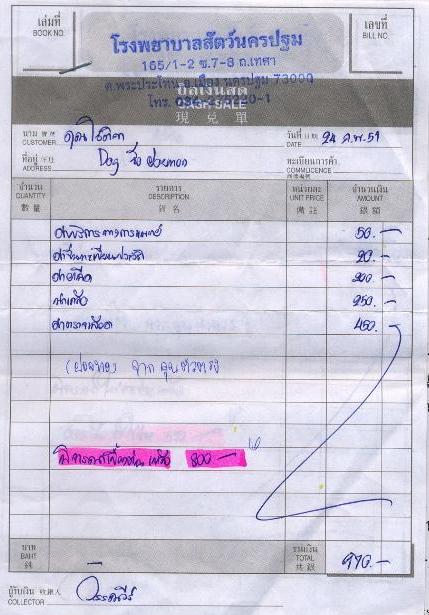 เล่มที่
BOOK NO.
เลขที่
BILL NO.
โรงพยาบาลสัตว์นครปฐม
165/1-2 ซ.7-8 ถ.เทศา
ต.พระปโทน อ.เมือง นครปฐม 73000
โทร.
บิลเงินสด
CASH SALE
現兌單
นาม
CUSTOMER
วันที่
DATE
24 ก.พ. 51
ที่อยู่
ADDRESS
Dog ชื่อ ฝอยทอง
ทะเบียนการค้า
COMMLICENCE
จำนวน
QUANTITY
數量
รายการ
DESCRIPTION
貨名
หน่วยละ
UNIT PRICE
備註
จำนวนเงิน
AMOUNT
銀額
ค่าบริการทางการแพทย์ 50.-
20.-
ค่าฉีด 200.-
น้ำเกลือ 250.-
ค่าตรวจเลือด 450.-
(ฝอยทอง) จาก คุณ
800.-
บาท
BAHT
銖
รวมเงิน
TOTAL
共銀
970.-
ผู้รับเงิน
COLLECTOR